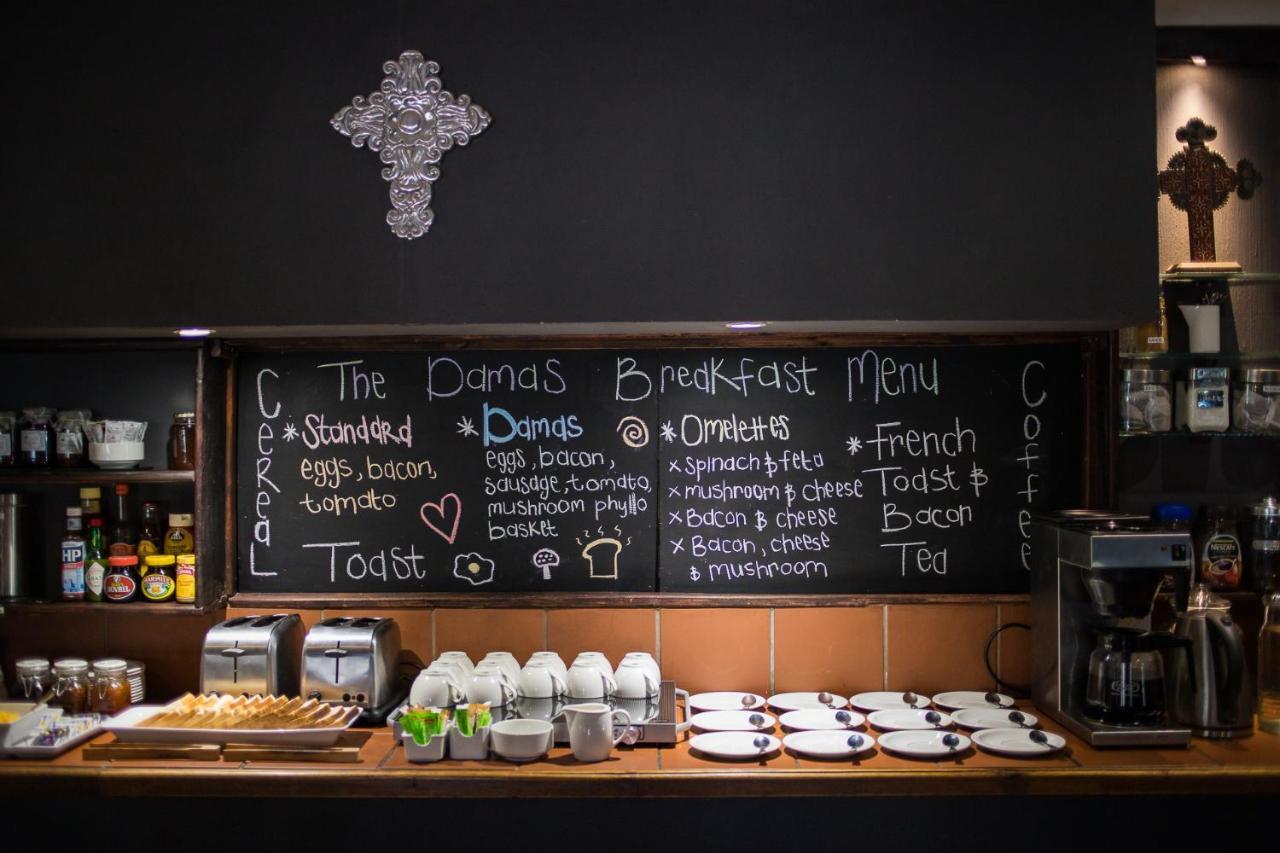 The Damas Breakfast Menu
Cereal
* Standard
eggs, bacon,
tomato
Toast
* Damas
eggs, bacon,
sausage, tomato,
mushroom phyllo
basket
* Omelettes
x spinach & feta
x mushroom & cheese
x Bacon & cheese
x Bacon, cheese
& mushroom
* French
Toast &
Bacon
Tea
Coffee
HP
BOVRIL
MARMITE
NESCAFE